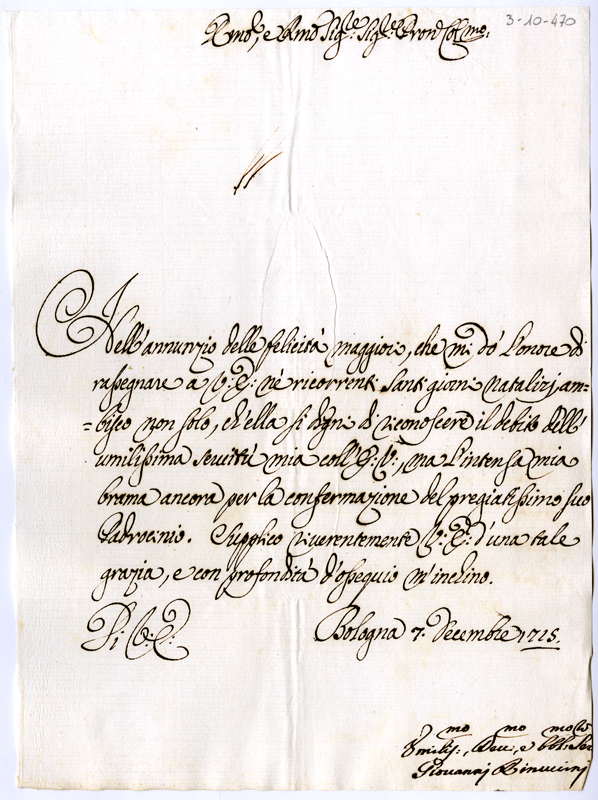 3-10-470
Emo, e Rmo Sig:re Sig:re Pron Col:mo:
Nell'annunzio delle felicità maggiori, che mi dò l'onore di
rassegnare a V: E: nè ricorrenti Santi giorni Natalizj, am=
=bisco non solo, ch'ella si degni di riconoscere il debito dell'
umilissima servitù mia coll' E: V:, ma l'intensa mia
brama ancora per la confermazione del pregiatissimo suo
Padrocinio. Supplico riverentemente V: E: d'una tale
grazia, e con profondità d'ossequio m'inchino.
Di V: E:
Bologna 7. Decembre 1725.
Umilis:mo, Devu:mo, e Obbl:mo Ser
Giovannj Rinuccinj